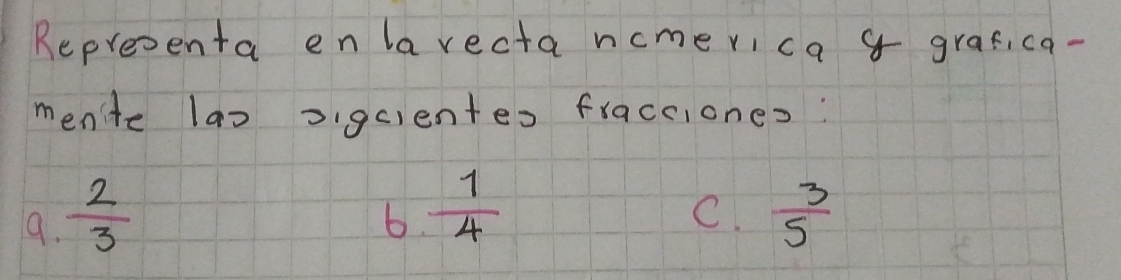 Representa en la recta numerica y grafica-
mente las siguientes fracciones:
a. 2/3 b. 1/4 c. 3/5